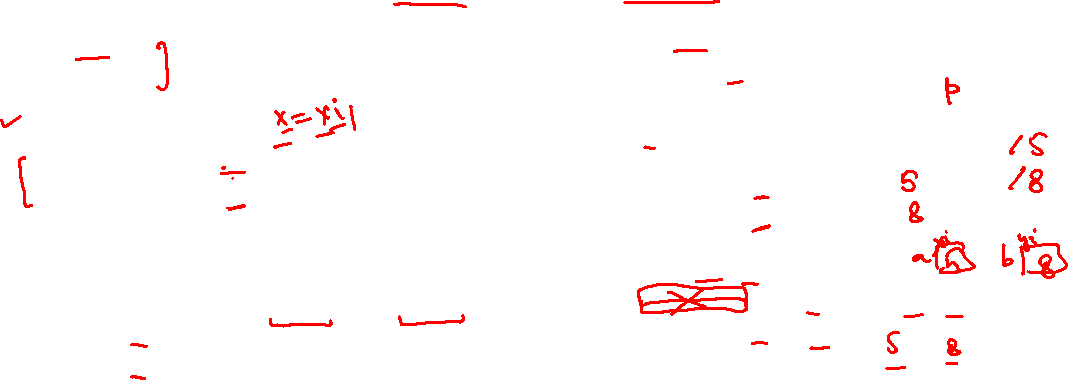 p
x = xi
15
5 18
8
a xi 5 b yi 8
5 8